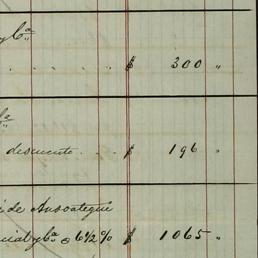 y Cª
. . . . . $ 300 "
Cª
descuento . $ 196 "
de Ansoategui
y Cª @ 6 1/2 % $ 1065 "